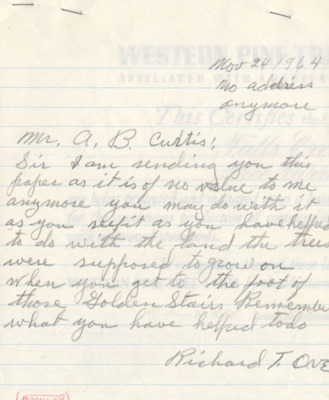 Nov 24 1964
no address
anymore
WESTERN PINE TR
AFFILIATED WITH AMERICA
This Certifies that
Mr. A. B. Curtis!
Sir I am sending you this
paper as it is of no value to me
anymore you may do with it
as you seefit as you have helped
to do with the land the trees
were supposed to grow on
When you get to the foot of
those Golden Stairs Remember
what you have helped todo
Richard T. Ove